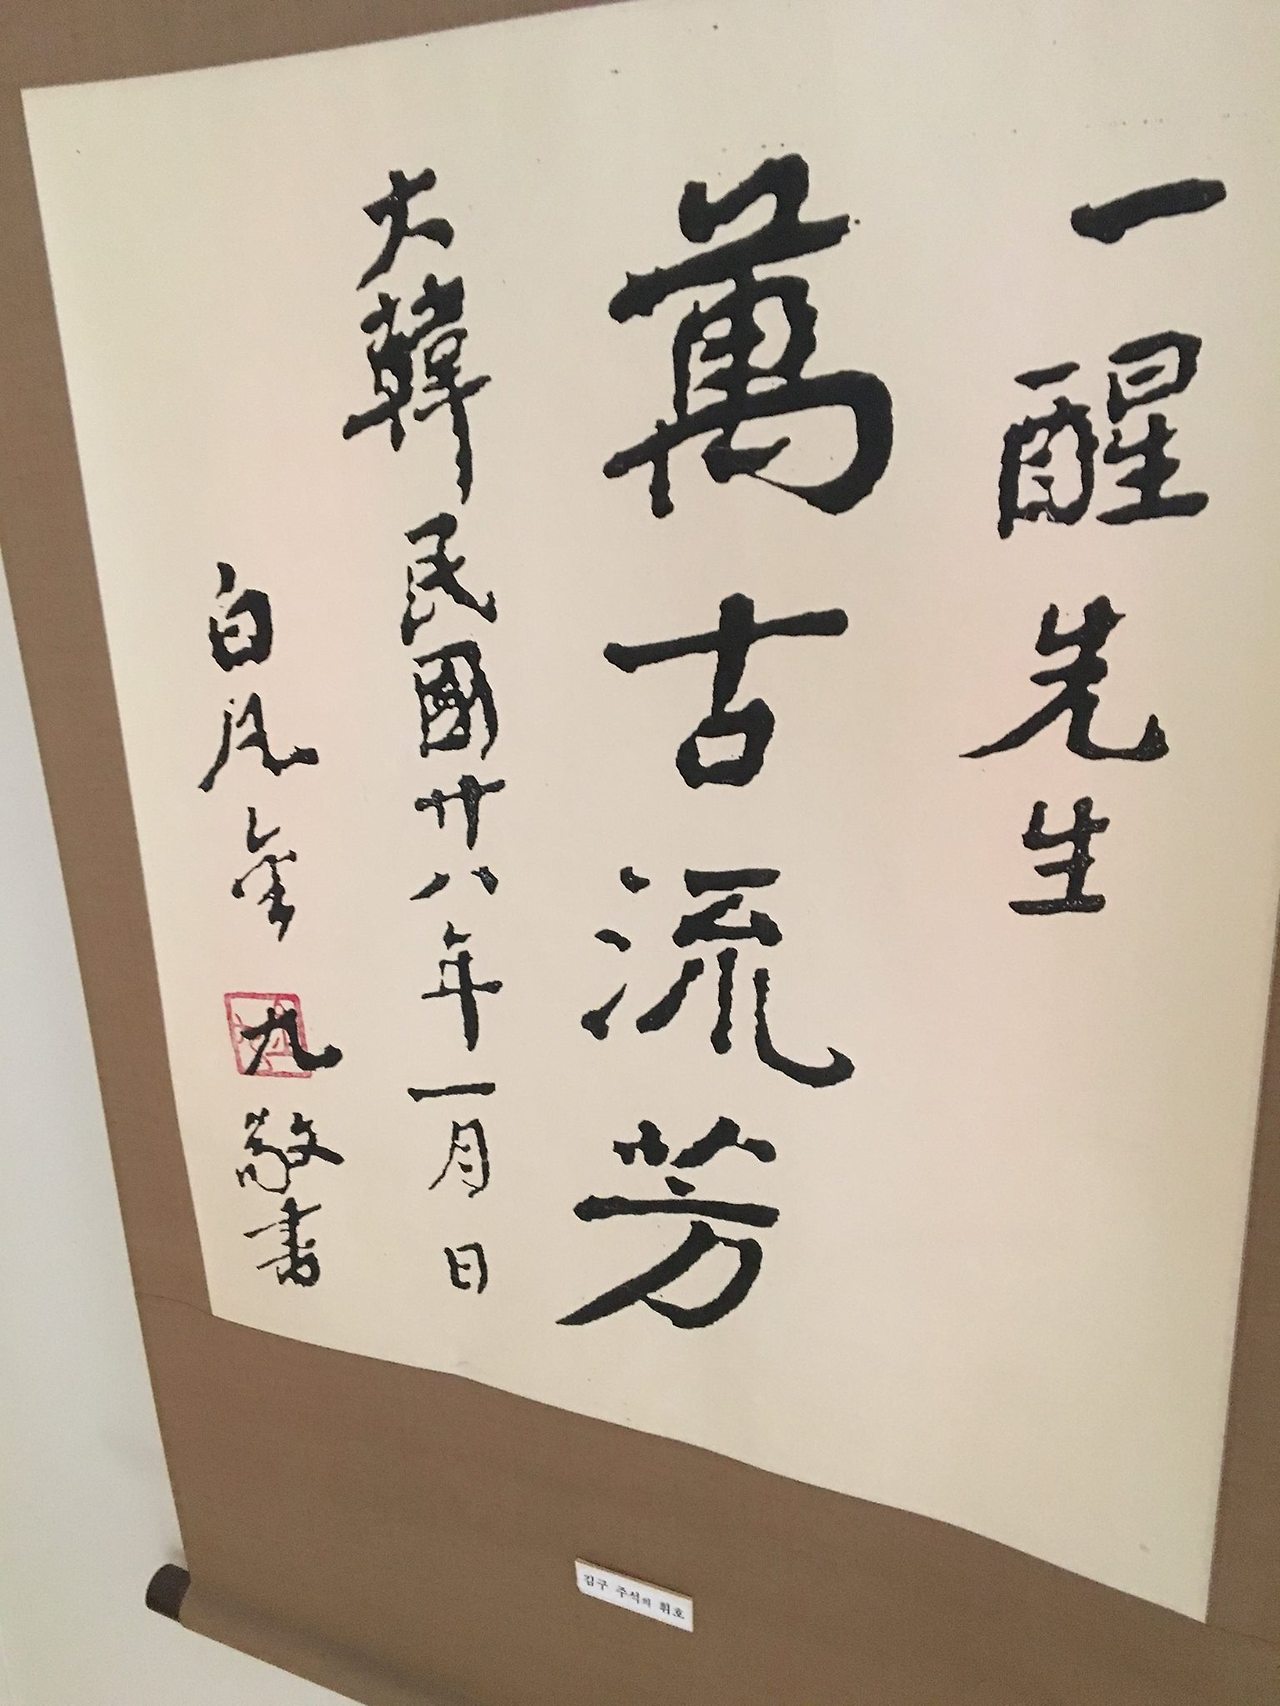 一醒先生
萬古流芳
大韓民國廿八年一月 日
白凡金九敬書
김구 주석의 휘호